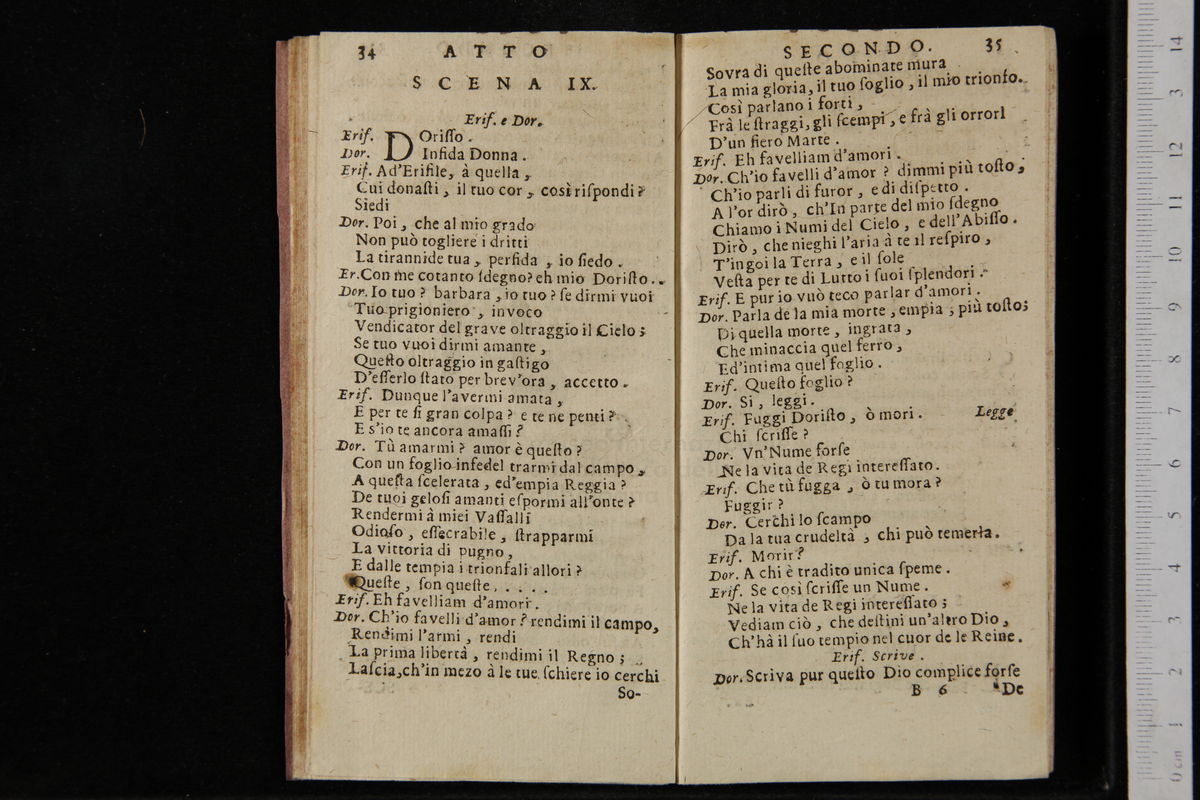 34 ATTO
SCENA IX.
Erif. e Dor.
Erif. DOriſſo.
Dor. Infida Donna.
Erif. Ad'Erifile, à quella,
Cui donaſti, il tuo cor, così riſpondi?
Siedi
Dor. Poi, che al mio grado
Non può togliere i dritti
La tirannide tua, perfida, io ſiedo.
Er. Con me cotanto ſdegno? eh mio Doriſto..
Dor. Io tuo? barbara, io tuo? ſe dirmi vuoi
Tuo prigioniero, invoco
Vendicator del grave oltraggio il Cielo;
Se tuo vuoi dirmi amante,
Queſto oltraggio in gaſtigo
D'eſſerlo ſtato per brev'ora, accetto.
Erif. Dunque l'avermi amata,
E per te ſi gran colpa? e te ne penti?
E s'io te ancora amaſſi?
Dor. Tù amarmi? amor è queſto?
Con un foglio infedel trarmi dal campo,
A queſta ſcelerata, ed'empia Reggia?
De tuoi geloſi amanti eſpormi all'onte?
Rendermi à miei Vaſſalli
Odioſo, eſſecrabile, ſtrapparmi
La vittoria di pugno,
E dalle tempia i trionfali allori?
Queſte, ſon queſte.....
Erif. Eh favelliam d'amori.
Dor. Ch'io favelli d'amor? rendimi il campo,
Rendimi l'armi, rendi
La prima libertà, rendimi il Regno;
Laſcia, ch'in mezo à le tue ſchiere io cerchi
So-
SECONDO. 35
Sovra di queſte abominate mura
La mia gloria, il tuo ſoglio, il mio trionfo.
Così parlano i forti,
Frà le ſtraggi, gli ſcempi, e frà gli orrori
D'un fiero Marte.
Erif. Eh favelliam d'amori.
Dor. Ch'io favelli d'amor? dimmi più toſto,
Ch'io parli di furor, e di diſpetto.
A l'or dirò, ch'In parte del mio ſdegno
Chiamo i Numi del Cielo, e dell'Abiſſo.
Dirò, che nieghi l'aria à te il reſpiro,
T'ingoi la Terra, e il ſole
Veſta per te di Lutto i ſuoi ſplendori.
Erif. E pur io vuò teco parlar d'amori.
Dor. Parla de la mia morte, empia, più toſto;
Di quella morte, ingrata,
Che minaccia quel ferro,
Ed'intima quel foglio.
Erif. Queſto foglio?
Dor. Si, leggi.
Erif. Fuggi Doriſto, ò mori. Legge
Chi ſcriſſe?
Dor. Vn'Nume forſe
Ne la vita de Regi intereſſato.
Erif. Che tù fugga, ò tu mora?
Fuggir?
Dor. Cerchi lo ſcampo
Da la tua crudeltà, chi può temerla.
Erif. Morir?
Dor. A chi è tradito unica ſpeme.
Erif. Se così ſcriſſe un Nume.
Ne la vita de Regi intereſſato;
Vediam ciò, che deſtini un'altro Dio,
Ch'hà il ſuo tempio nel cuor de le Reine.
Erif. Scrive.
Dor. Scriva pur queſto Dio complice forſe
B 6 De